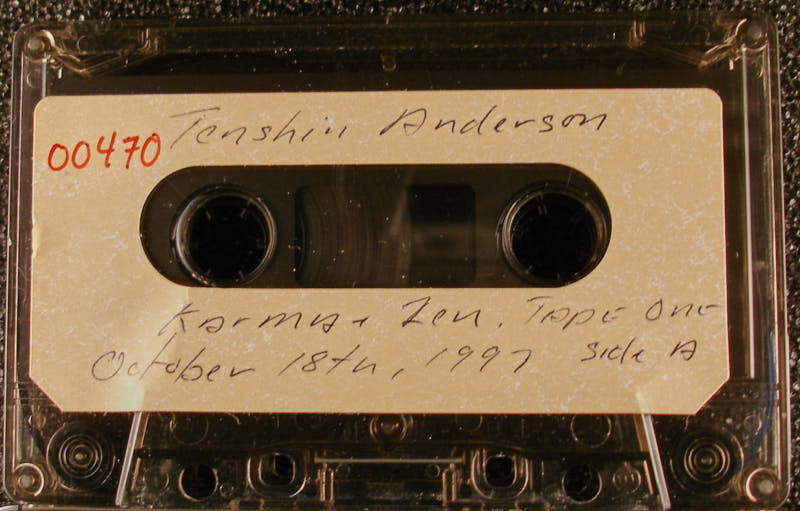 Tenshin Anderson
00470
Karma + Zen. Tape One
October 18th, 1997 Side A